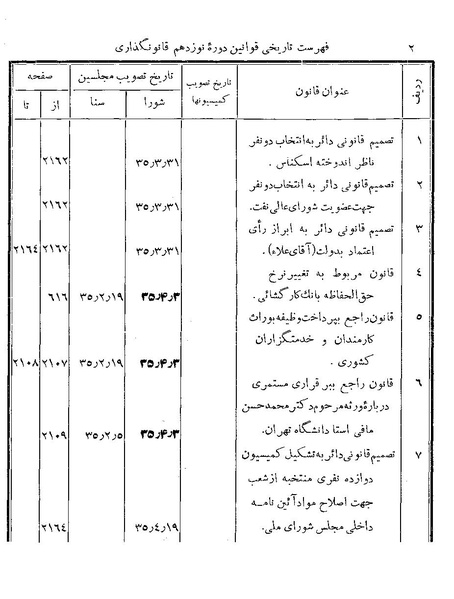 ۲ فهرست تاریخی قوانین دورهٔ نوزدهم قانونگذاری
ردیف عنوان قانون تاریخ تصویب کمیسیونها تاریخ تصویب مجلسین صفحه
شورا سنا از تا
۱ تصمیم قانونی دائر به انتخاب دو نفر
ناظر اندوخته اسکناس . ۳۵٫۳٫۳۱ ۲۱۶۲
۲ تصمیم قانونی دائر به انتخاب دو نفر
جهت عضویت شورای عالی نفت. ۳۵٫۳٫۳۱ ۲۱۶۲
۳ تصمیم قانونی دائر به ابراز رأی
اعتماد بدولت (آقای علاء). ۳۵٫۳٫۳۱ ۲۱۶۲ ۲۱۶۴
۴ قانون مربوط به تغییر نرخ
حق الحفاظه بانک کارگشائی. ۳۵٫۴٫۳ ۳۵٫۲٫۱۹ ۶۱۶
۵ قانون راجع بپرداخت وظیفه بوراث
کارمندان و خدمتگزاران
کشوری . ۳۵٫۴٫۳ ۳۵٫۲٫۱۹ ۲۱۰۷ ۲۱۰۸
۶ قانون راجع ببرقراری مستمری
دربارهٔ ورثه مرحوم دکتر محمد حسن
مافی استا دانشگاه تهران. ۳۵٫۴٫۳ ۳۵٫۲٫۵ ۲۱۰۹
۷ تصمیم قانونی دائر به تشکیل کمیسیون
دوازده نفری منتخبه از شعب
جهت اصلاح مواد آئین نامه
داخلی مجلس شورای ملی. ۳۵٫۴٫۱۹ ۲۱۶۴